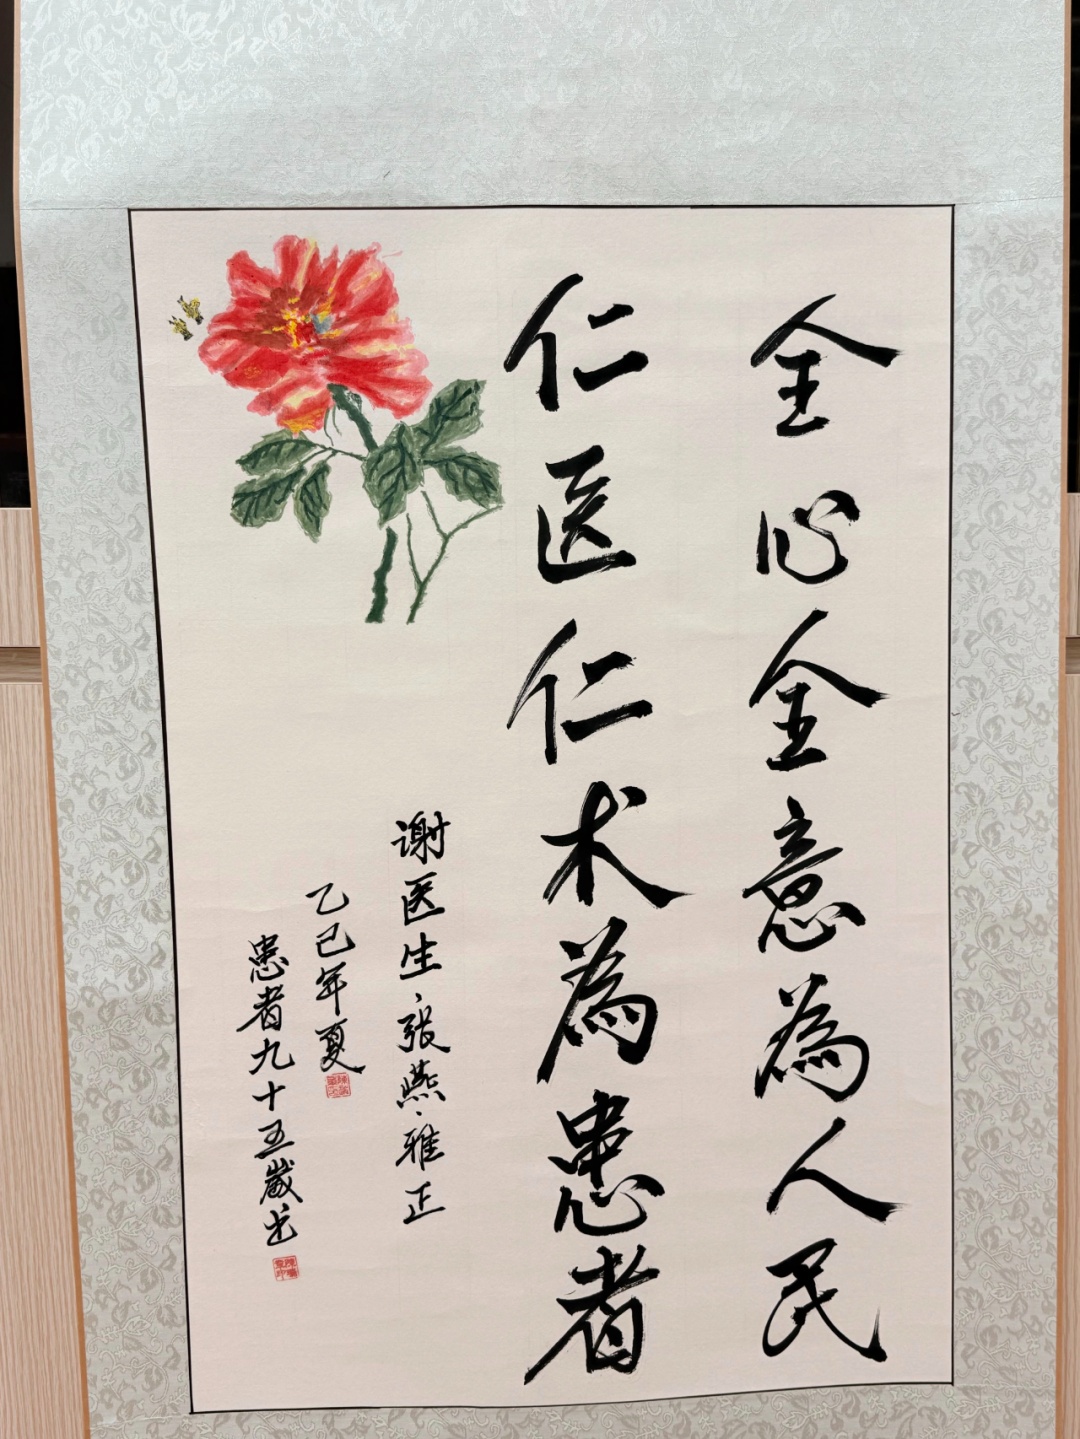 全心全意為人民
仁医仁术為患者
谢医生、張燕、雅正
乙己年夏
患者九十五歲书